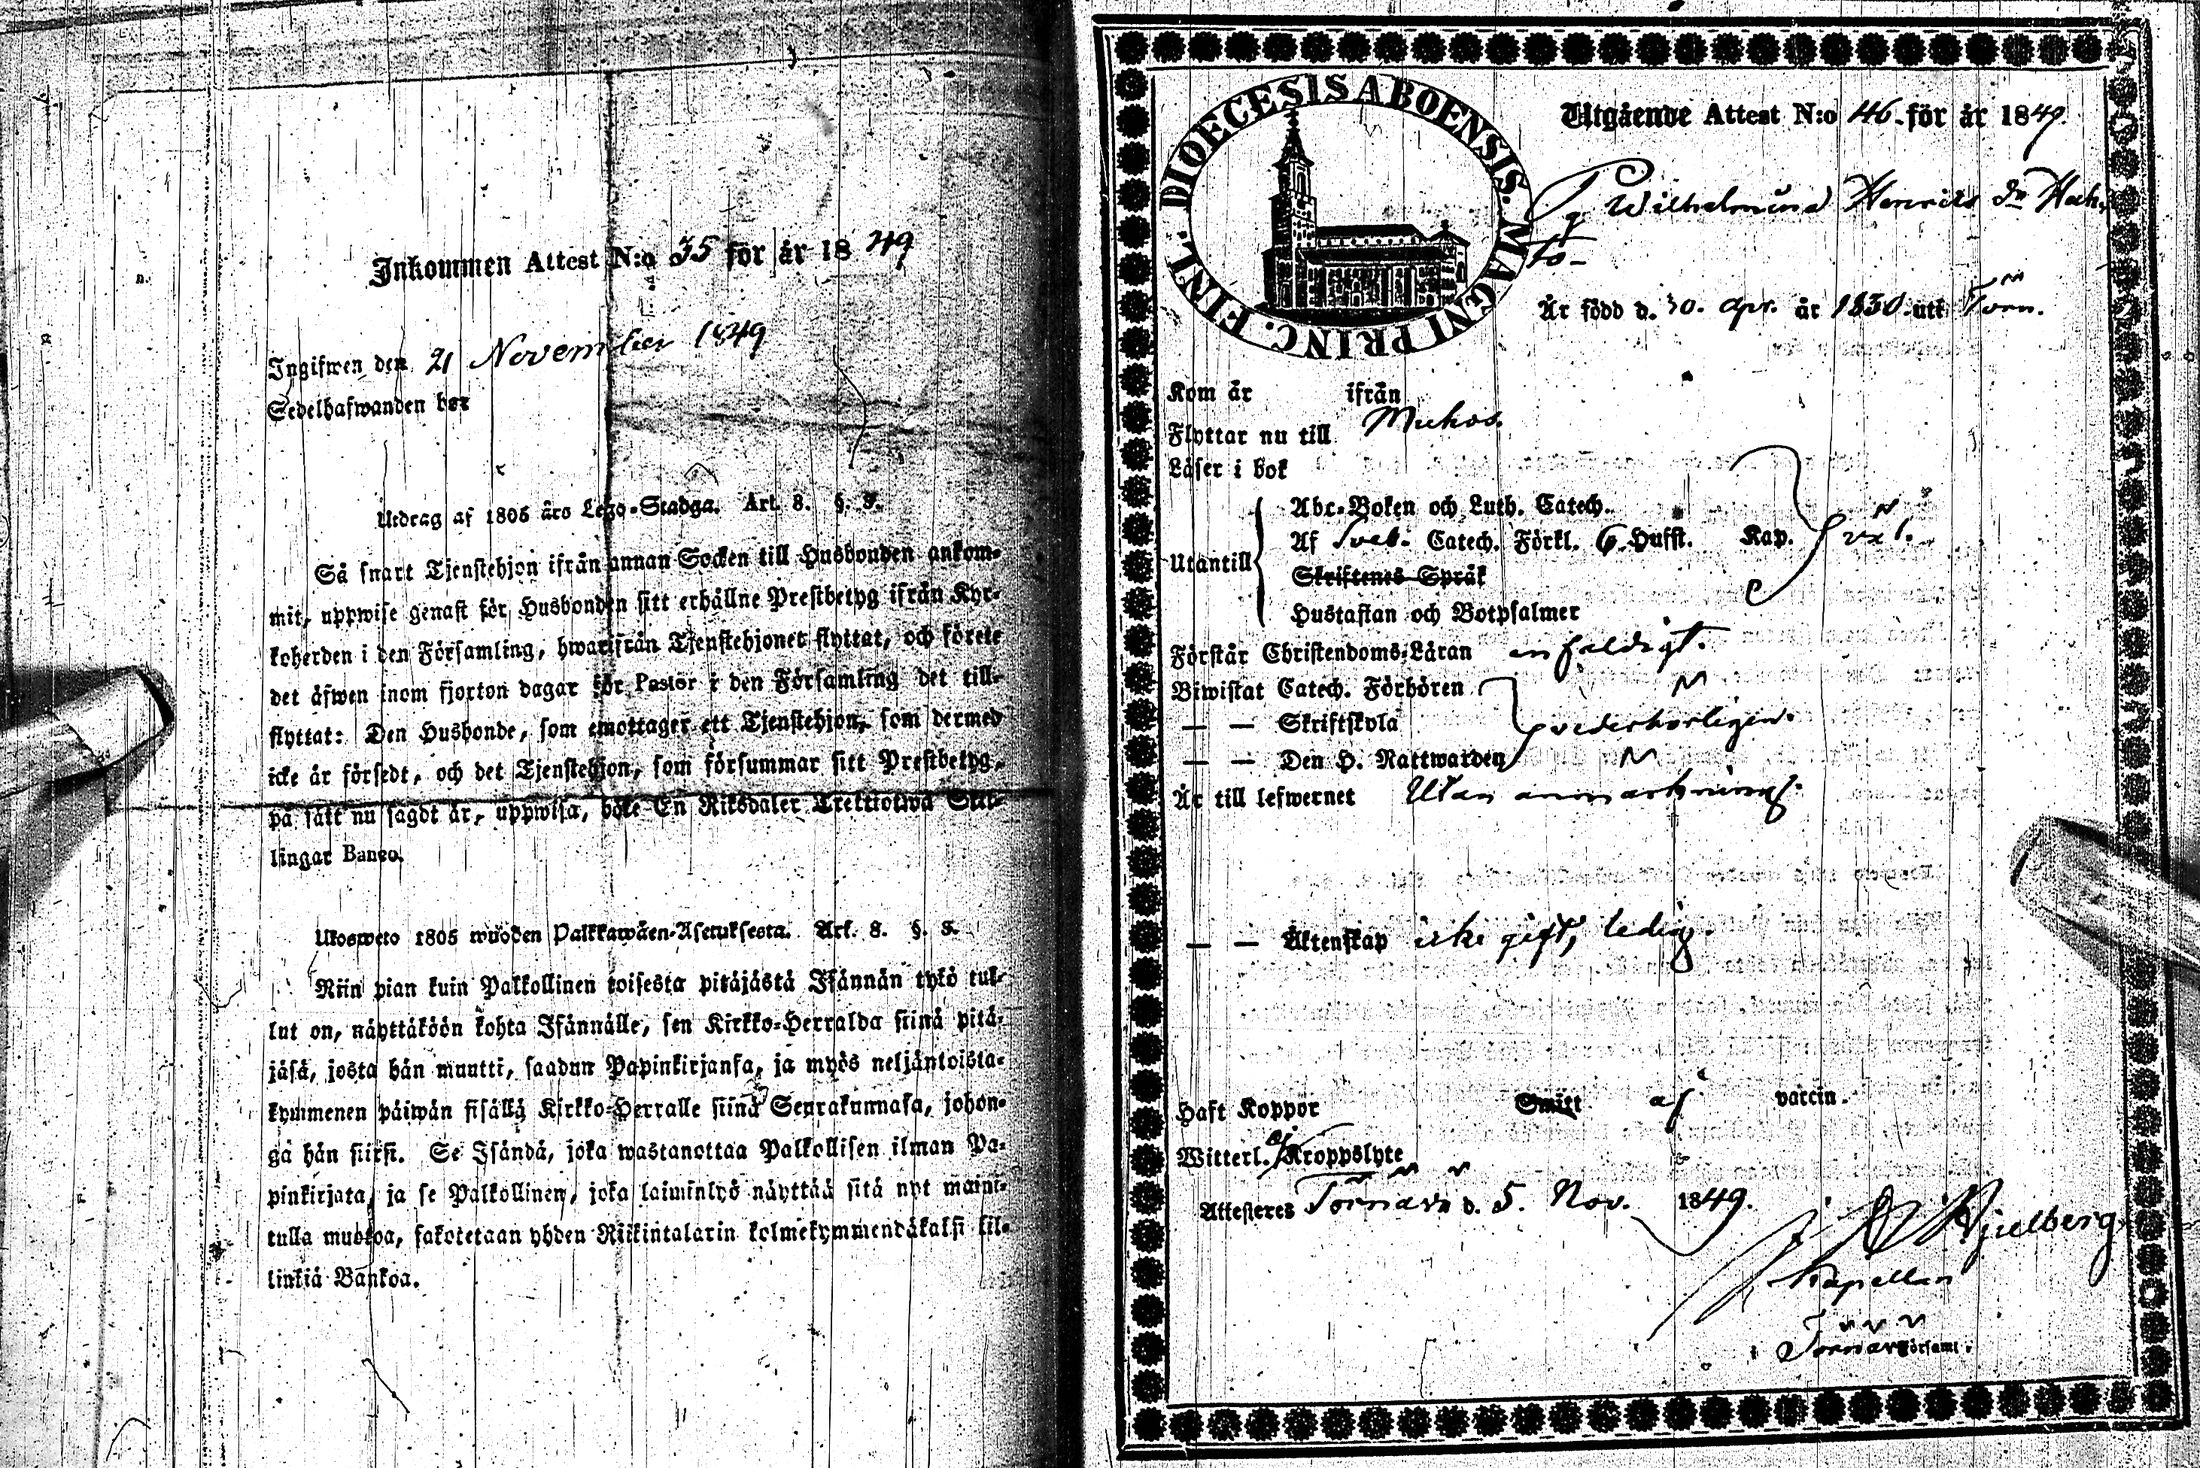 Inkommen Attest N:o 35 för år 1849
Ingifwen den 21 November 1849
Sedelhafwanden bor
Utdrag af 1805 års Lego-Stadga. Art. 8. §. 5.
Så snart Tjenstehjon ifrån annan Socken till Husbonden ankom-
mit, uppwise genast för Husbonden sitt erhållne Prestbetyg ifrån Kyr-
koherden i den Församling, hwarifrån Tjenstehjonet flyttat, och förete
det äfwen inom fjorton dagar för Pastor i den Församling det till-
flyttat: Den Husbonde, som emottager ett Tjenstehjon, som dermed
icke är försedt, och det Tjenstehjon, som försummar sitt Prestbetyg,
på sätt nu sagdt är, uppwisa, böte En Riksdaler Trettiotwå Skil-
lingar Banco.
Ulosweto 1805 wuoden Palkkawäen-Asetuksesta. Art. 8. §. 5.
Niin pian kuin Palkollinen toisesta pitäjästä Isännän tykö tul-
lut on, näyttäköön kohta Isännälle, sen Kirkko-Herralda siinä pitä-
jäsä, josta hän muutti, saadun Papinkirjansa, ja myös neljäntoista-
kymmenen päiwän sisällä Kirkko-Herralle siinä Seurakunnasa, johon-
ga hän siirsi. Se Isändä, joka wastanottaa Palkollisen ilman Pa-
pinkirjata, ja se Palkollinen, joka laiminlyö näyttää sitä nyt maini-
tulla muotoa, sakotetaan yhden Riikintalarin kolmekymmendäkaksi kil-
linkiä Bankoa.
DIOECESIS ABOENSIS. MAGNI PRINC. FINL.
Utgående Attest N:o 46 för år 1849.
Pig. Wilhelmina Henriks dr Hah,
to-
Är född d. 30. Apr. år 1830. uti Törn.
Kom år ifrån
Flyttar nu till Muhos.
Läser i bok
Utantill
Abc-Boken och Luth. Catech.
Af Sveb. Catech. Förkl. 6. Hufst. Kap.
Skriftenes Språk
Hustaflan och Botpsalmer
Förstår Christendoms-Läran enfaldigt.
Biwistat Catech. Förhören
— — Skriftskola vederbörligen.
— — Den H. Nattwarden
Är till lefwernet Utan anmärkning.
— — Äktenskap icke gift, ledig.
Haft Koppor Smitt af vaccin.
Witterl. ej Kroppslyte
Attesteres Törnävä d. 5. Nov. 1849.
Hjelberg
Kapellan
Törnävä Församl.